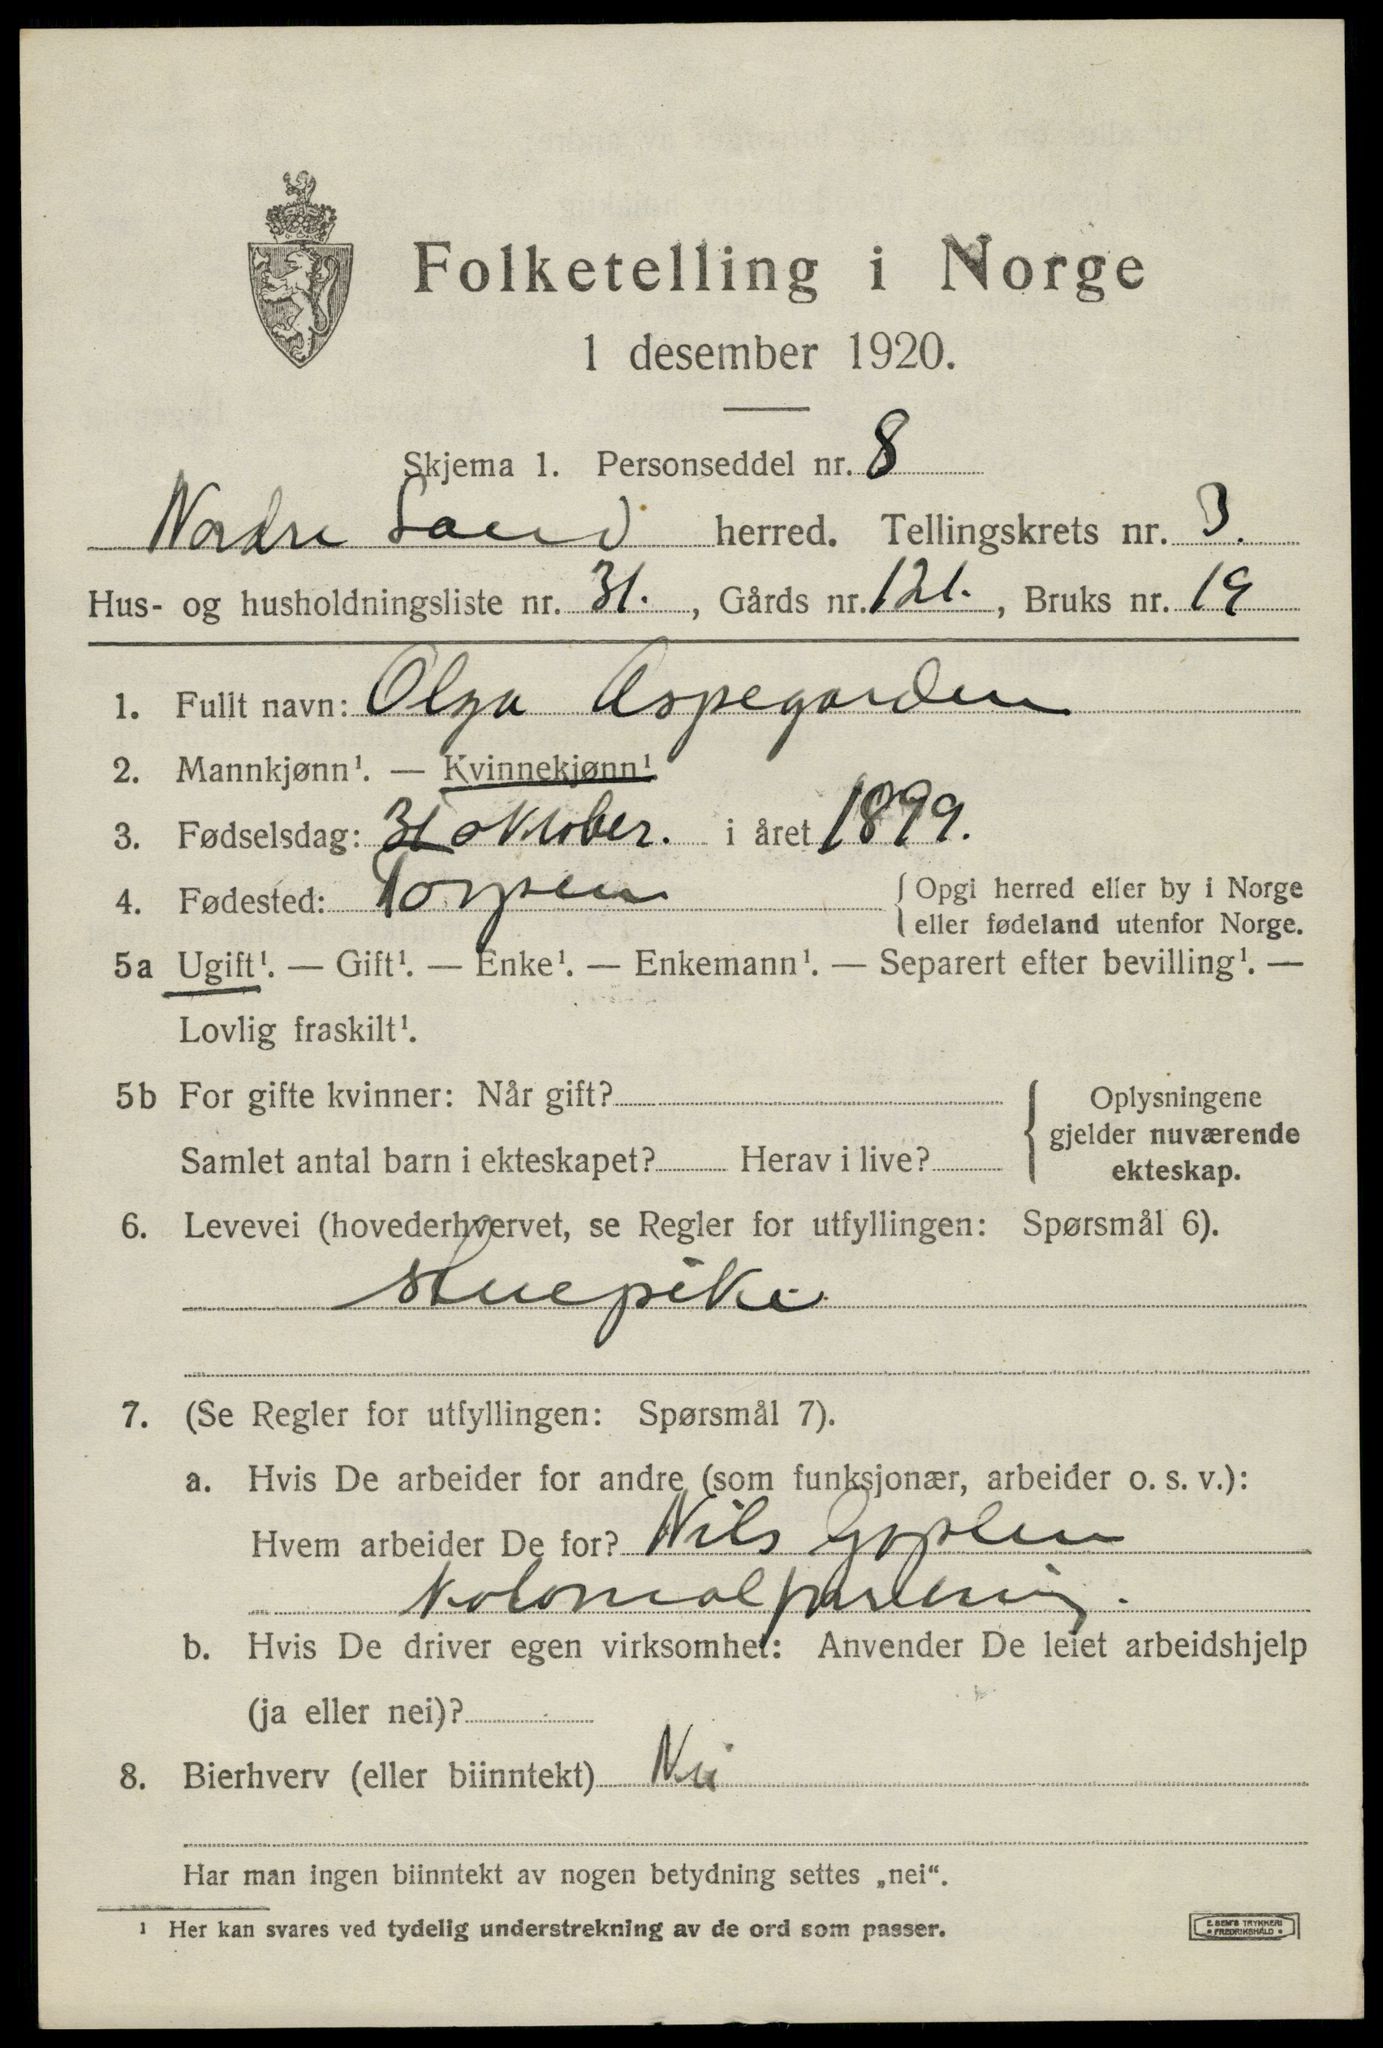 Folketelling i Norge
1 desember 1920.
Skjema 1. Personseddel nr. 8
Nordre Land herred. Tellingskrets nr. 3.
Hus- og husholdningsliste nr. 31. , Gårds nr. 121. , Bruks nr. 19
1. Fullt navn: Olga Aspegarden
2. Mannkjønn¹. — Kvinnekjønn¹
3. Fødselsdag: 31 oktober. i året 1899.
4. Fødested: Torpen { Opgi herred eller by i Norge
eller fødeland utenfor Norge.
5a Ugift¹. — Gift¹. — Enke¹. — Enkemann¹. — Separert efter bevilling¹. —
Lovlig fraskilt¹.
5b For gifte kvinner: Når gift?
Samlet antal barn i ekteskapet? Herav i live?
{ Oplysningene
gjelder nuværende
ekteskap.
6. Levevei (hovederhvervet, se Regler for utfyllingen: Spørsmål 6).
stuepike.
7. (Se Regler for utfyllingen: Spørsmål 7).
a. Hvis De arbeider for andre (som funksjonær, arbeider o. s. v.):
Hvem arbeider De for? Nils Goplen
Kolonialforretning.
b. Hvis De driver egen virksomhet: Anvender De leiet arbeidshjelp
(ja eller nei)?
8. Bierhverv (eller biinntekt) Nei
Har man ingen biinntekt av nogen betydning settes „nei“.
¹ Her kan svares ved tydelig understrekning av de ord som passer.
E. SEM'S TRYKKERI
• FREDRIKSHALD •